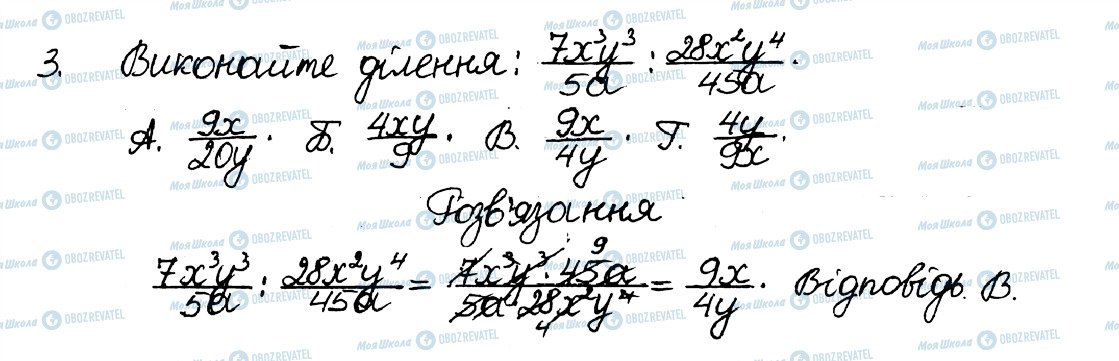 3. Виконайте ділення: 7x³y³/5a : 28x²y⁴/45a.
А. 9x/20y. Б. 4xy/9. В. 9x/4y. Г. 4y/9x.
Розв'язання
7x³y³/5a : 28x²y⁴/45a = 7x³y³ · 45a/5a · 28x²y⁴ = 9x/4y. Відповідь. В.